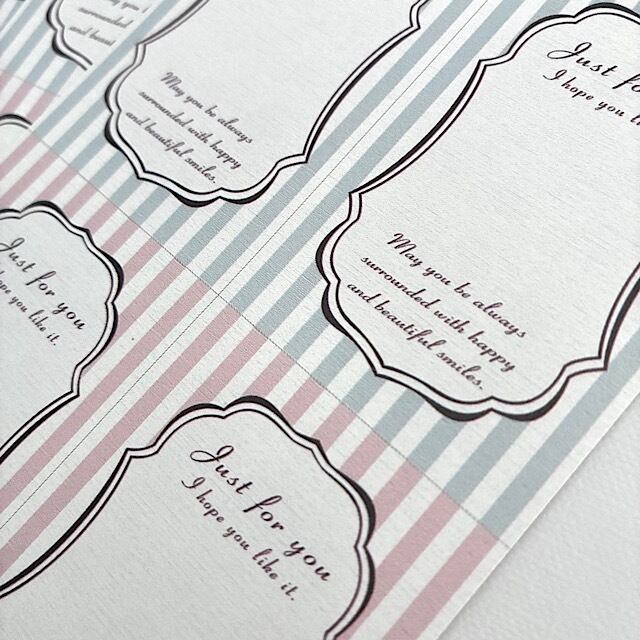 surrounded
May you be always
surrounded with happy
and beautiful smiles.
Just fo
I hope you li
May you be always
surrounded with happy
and beautiful smiles.
Just for you
hope you like it.
Just for you
I hope you like it.